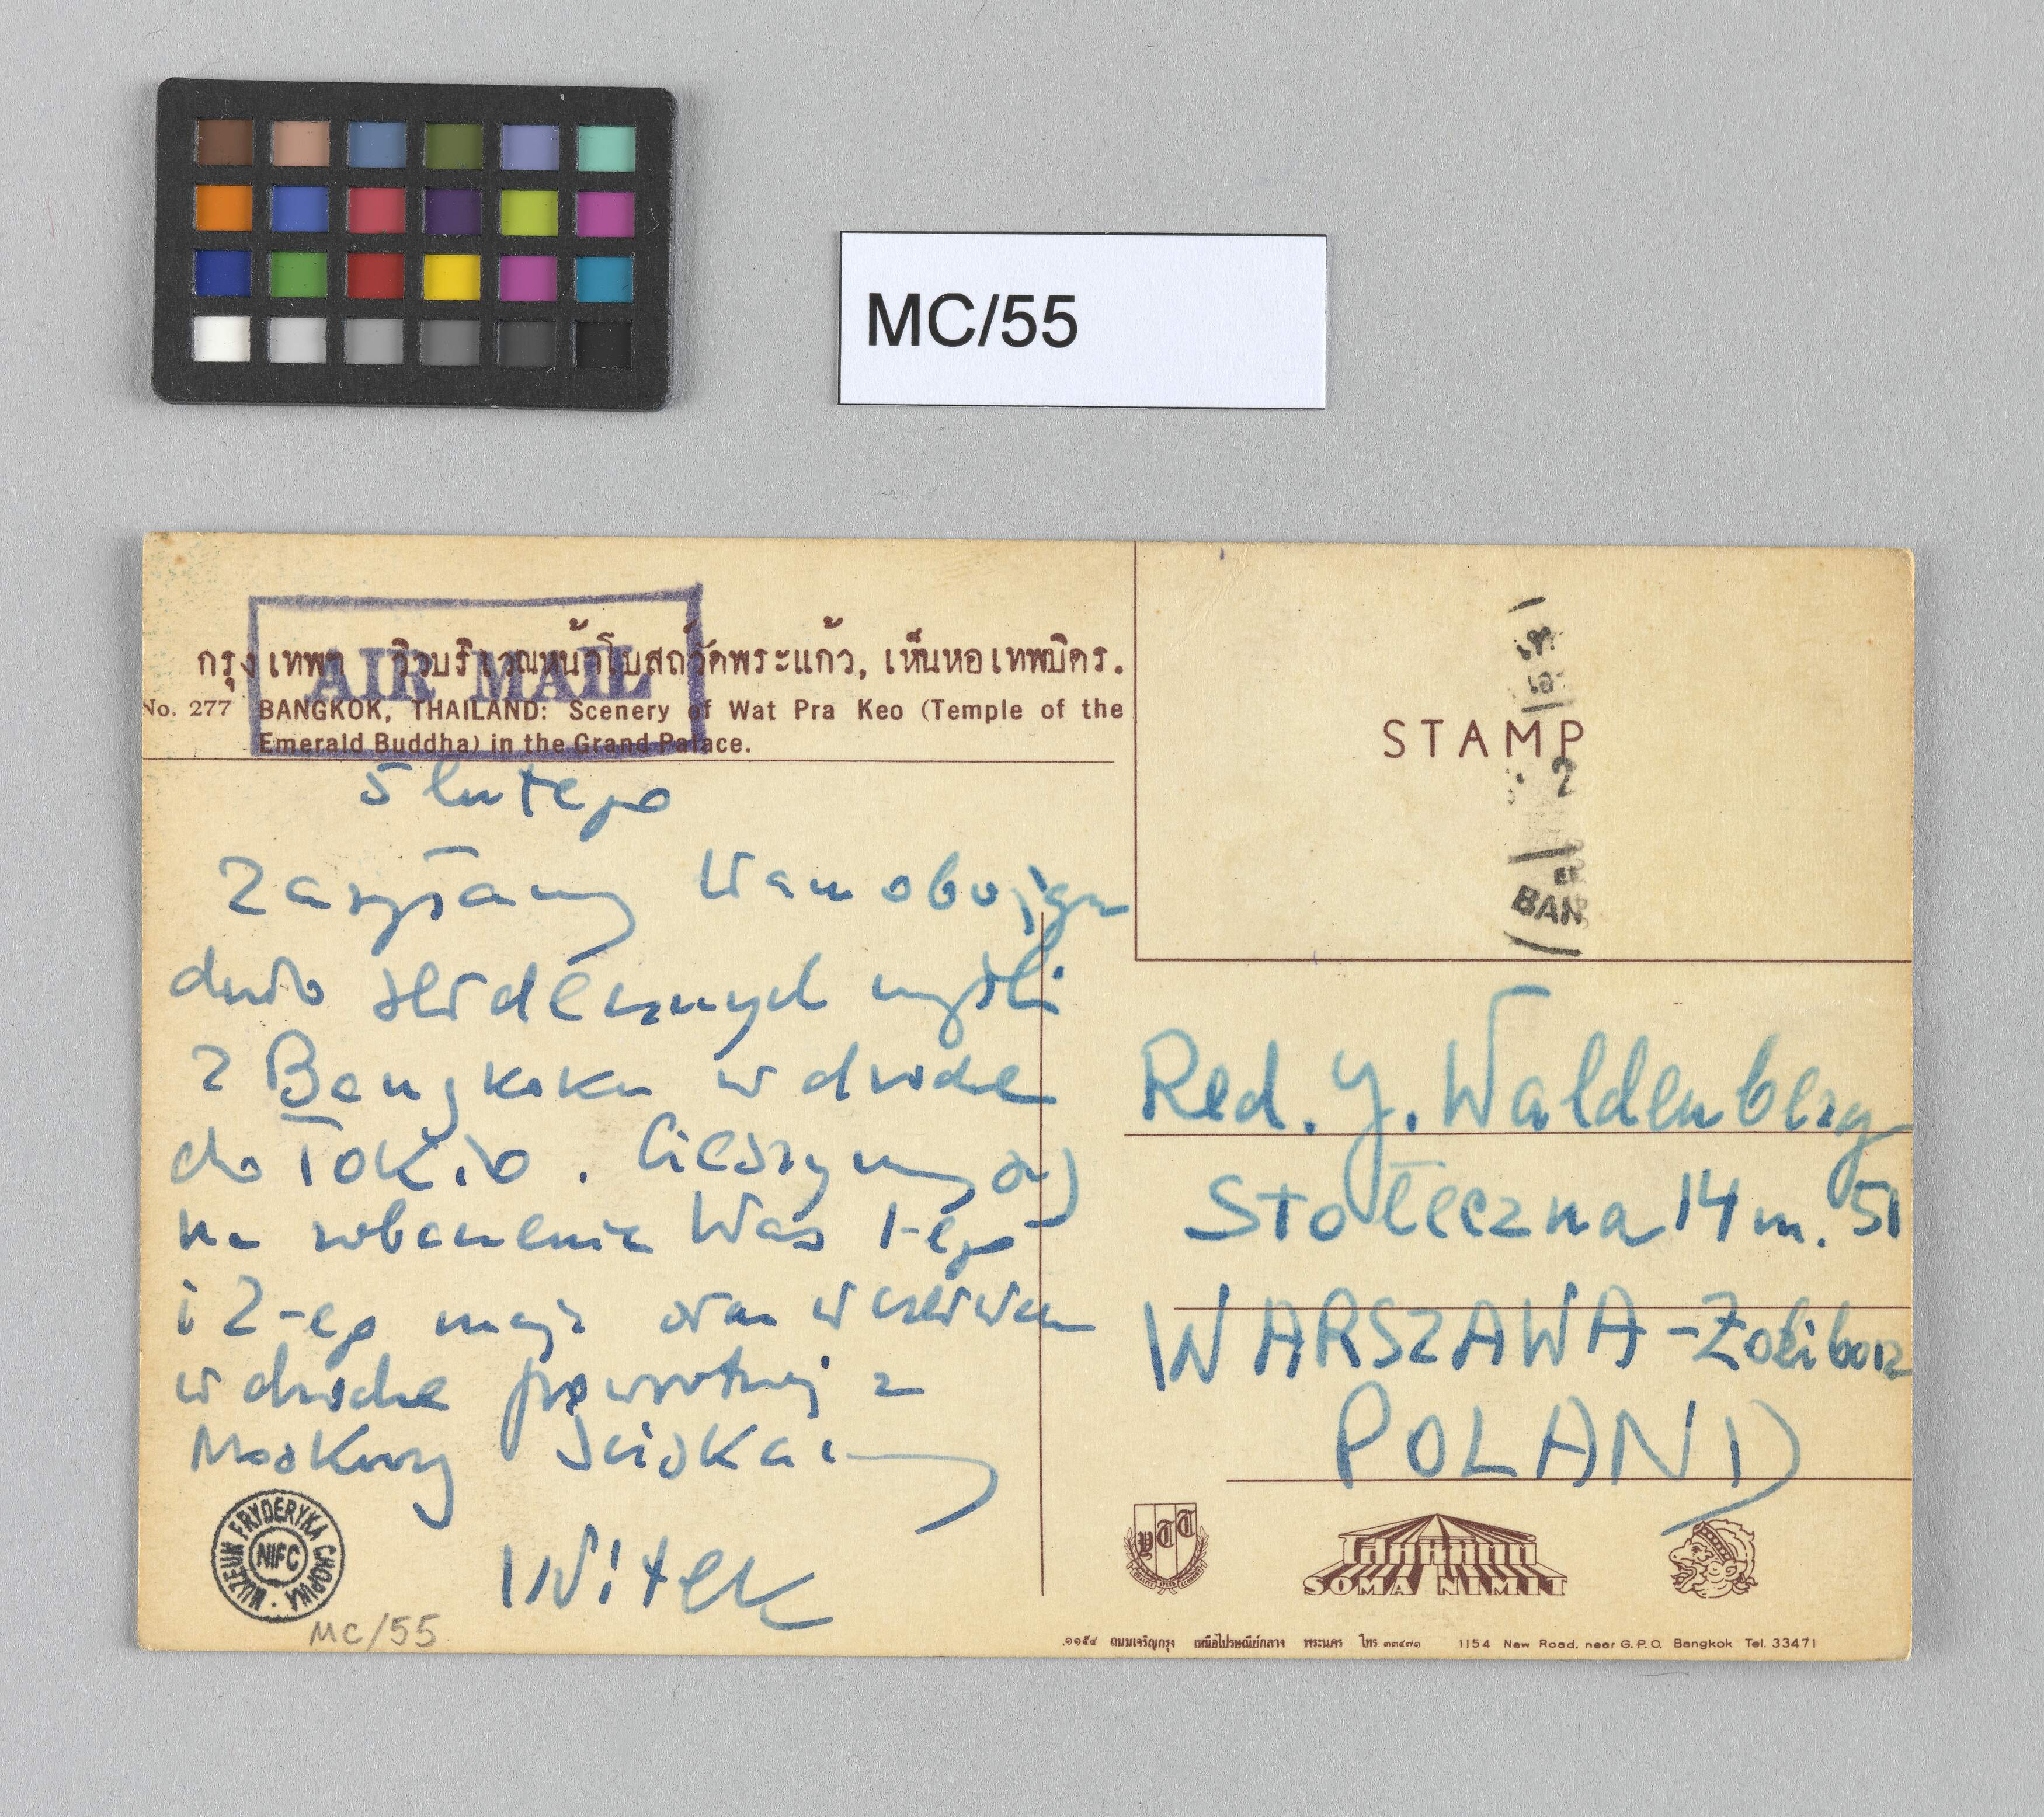 MC/55
AIR MAIL
กรุงเทพฯ วิวบริเวณหน้าโบสถ์วัดพระแก้ว, เห็นหอเทพบิดร.
No. 277 BANGKOK, THAILAND: Scenery of Wat Pra Keo (Temple of the
Emerald Buddha) in the Grand Palace.
5 lutego
Zasyłamy Wam obojgu
dużo serdecznych myśli
z Bangkoku w drodze
do Tokio. Cieszymy się
na zobaczenie Was 1-ego
i 2-ego maja oraz w czerwcu
w drodze powrotnej z
Moskwy Ściskamy
Witek
STAMP
2
BAN
Red. J. Waldenberg
Stołeczna 14 m. 51
WARSZAWA - Żoliborz
POLAND
MUZEUM FRYDERYKA CHOPINA
NIFC
MC/55
YTT
SOMA NIMIT
๑๑๕๔ ถนนเจริญกรุง เหนือไปรษณีย์กลาง พระนคร โทร ๓๓๔๗๑ 1154 New Road, near G.P.O. Bangkok Tel. 33471